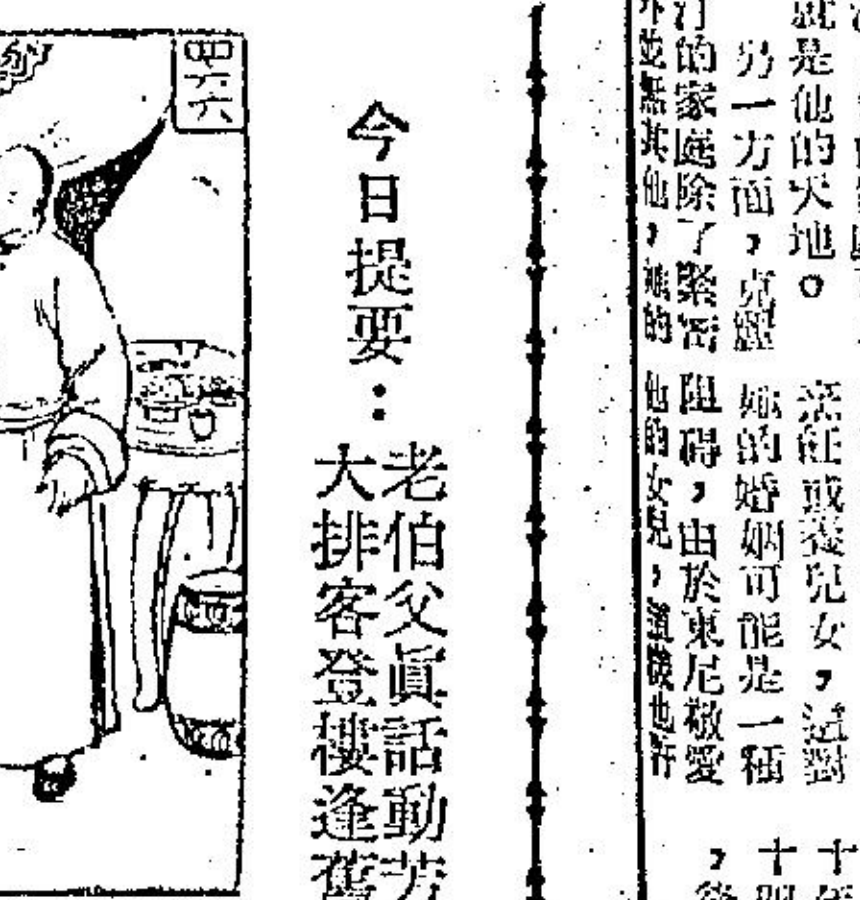 就是他的天地。
另一方面,克麗
汀的家庭除了緊密
外並無其他,她的
烹飪或養兒女,這對
她的婚姻可能是一種
阻碍,由於東尼敬愛
他的女兒,也許
十年
十
今日提要:
老伯父眞話動芳
大排客登樓逢舊
四六六